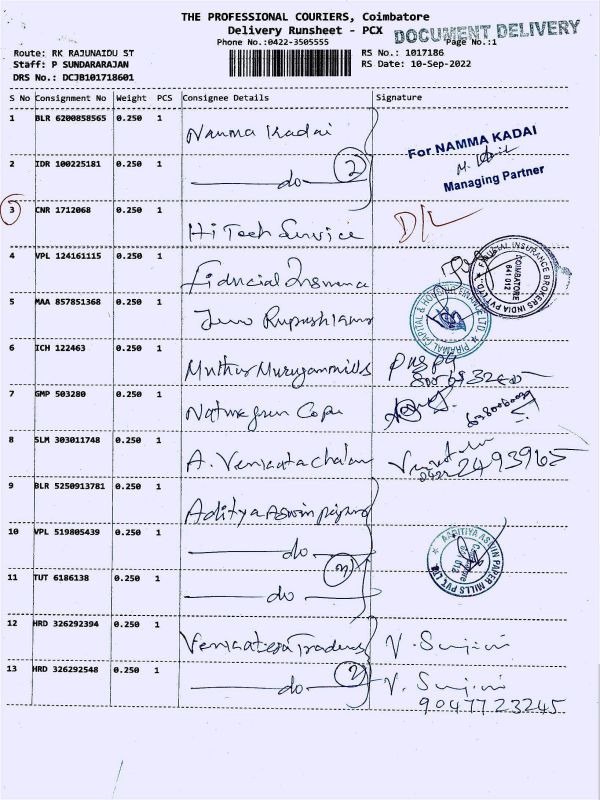 THE PROFESSIONAL COURIERS, Coimbatore
Delivery Runsheet - PCX
DOCUMENT DELIVERY
Phone No.:0422-3505555
Page No.:1
Route: RK RAJUNAIDU ST
RS No.: 1017186
Staff: P SUNDARARAJAN
RS Date: 10-Sep-2022
DRS No.: DCJB101718601
S No Consignment No Weight PCS Consignee Details Signature
1 BLR 6200858565 0.250 1 Namma Kadai
For NAMMA KADAI
Managing Partner
2 IDR 100225181 0.250 1 do 2
3 CNR 1712068 0.250 1 Hi Tech Service D/L
4 VPL 124161115 0.250 1
INSURANCE BROKERS INDIA PVT LTD
COIMBATORE
641 012
5 MAA 857851368 0.250 1
PIRAMAL CAPITAL & HOUSING FINANCE LTD.
6 ICH 122463 0.250 1 Muthu Murugan mills
7 GMP 503280 0.250 1
8 SLM 303011748 0.250 1 A. Venkatachalam
2493965
9 BLR 5250913781 0.250 1 Aditya Aswin
10 VPL 519805439 0.250 1 do
AADITIYA ASWIN PAPER MILLS PVT. LTD.
11 TUT 6186138 0.250 1 do
12 HRD 326292394 0.250 1 Venkatesa Traders V.
13 HRD 326292548 0.250 1 do 2 V.
9047723245